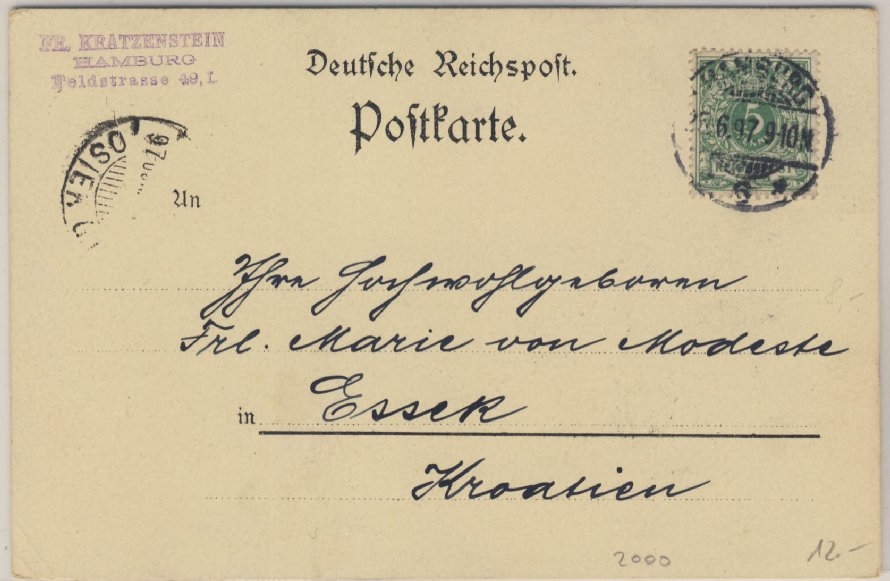 FR. KRATZENSTEIN
HAMBURG
Feldstrasse 49, I.
Deutsche Reichspost.
Postkarte.
HAMBURG
6.97 9-10N
6 *
5
97
OSIEK
An
Ihre Hochwohlgeboren
Frl. Marie von Modeste
in Essek
Kroatien
8,-
2000
12.-